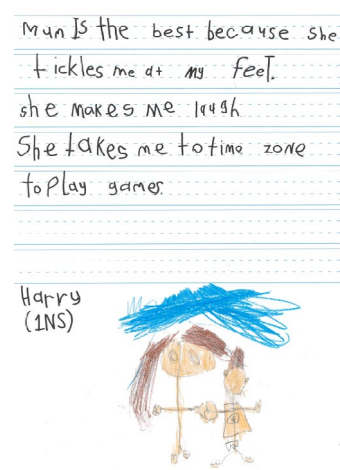 Mum Is the best because she
tickles me at my feet.
she makes me laugh
She takes me to time zone
to play games.
Harry
(1NS)